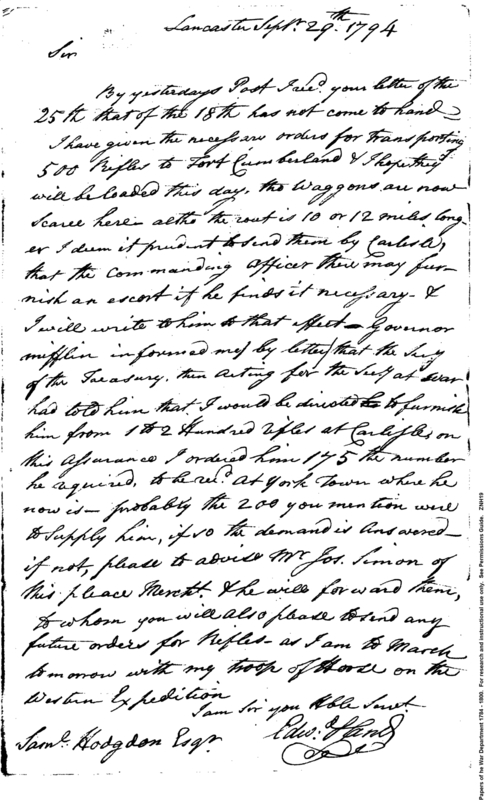 Lancaster Septr. 29th. 1794
Sir
By yesterdays Post I recd. your letter of the
25th that of the 18th has not come to hand –
I have given the necessary orders for transporting
500 Rifles to Fort Cumberland & I hope they
will be loaded this day, the Waggons are now
scarce here – altho the rout is 10 or 12 miles long-
er I deem it prudent to send them by Carlisle,
that the commanding officer there may fur-
nish an escort if he finds it necessary – &
I will write to him to that effect – Governor
Mifflin informed me (by letter) that the Secy
of the Treasury, then acting for the Secy at War
had told him that I would be directed to furnish
him from 1 to 2 Hundred rifles at Carlisle, on
this assurance I ordered him 175 the number
he required, to be recd. at York Town where he
now is – probably the 200 you mention were
to supply him, if so the demand is answered –
if not, please to advise Mr. Jos. Simon of
this place Mercht. & he will forward them,
to whom you will also please to send any
future orders for Rifles – as I am to March
tomorrow with my troop of Horse on the
Western Expedition
I am Sir you Hble Servt.
Saml. Hodgdon Esqr. Edwd. Hand
Papers of the War Department 1784 - 1800. For research and instructional use only. See Permissions Guide. ZNH19